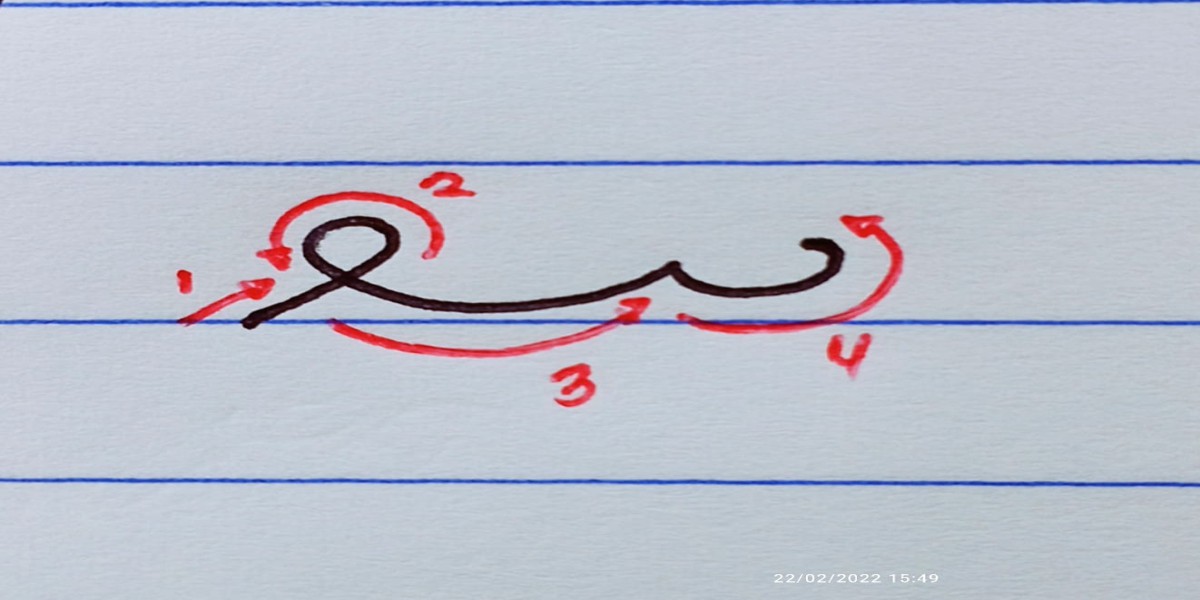 1
2
3
4
22/02/2022 15:49